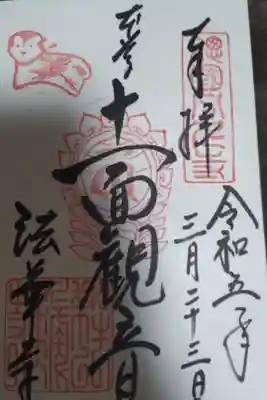 奉拝
令和五年
三月二十三日
本尊
十一面観音
法華寺